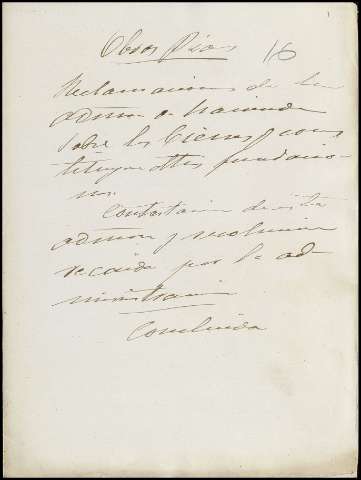 1
Obras Pias 16
Reclamaciones de la
admon de hacienda
sobre los bienes q cons
tituyen estas fundacio
nes
Contestacion de esta
admon y resolucion
recaida por la ad
ministracion
Concluida